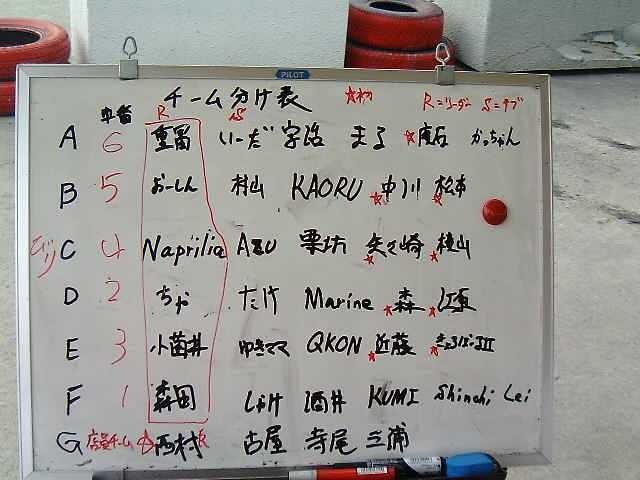 PILOT
チーム分け表 ☆初 R=リーダー S=サブ
車番 R S
A 6 重冨 いーだ 宇治 まる ☆ かっちゃん
B 5 おーしん 村山 KAORU ☆中川 ☆松本
C 4 Naprilia AZU 栗坊 ☆矢ケ崎 ☆桂山
D 2 ちゃ たけ Marine ☆森 ☆江原
E 3 小菌井 ゆきママ QKON ☆近藤 ☆
F 1 森田 しゃけ 酒井 KUMI Shinchi Lei
G 店員チーム ☆西村R 古屋 寺尾 三浦